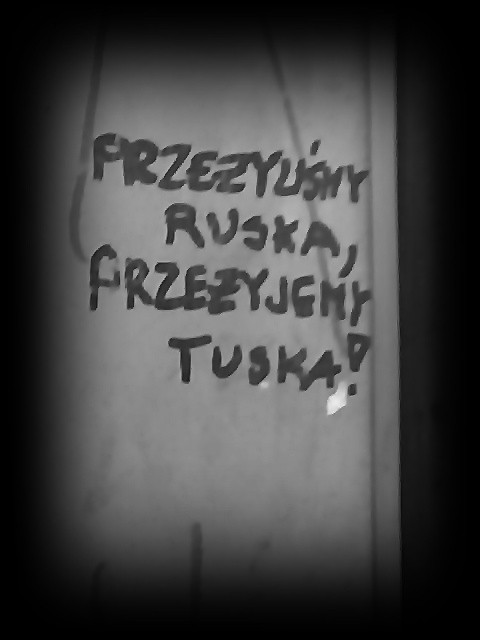 PRZEŻYLIŚMY
RUSKA,
PRZEŻYJEMY
TUSKA!